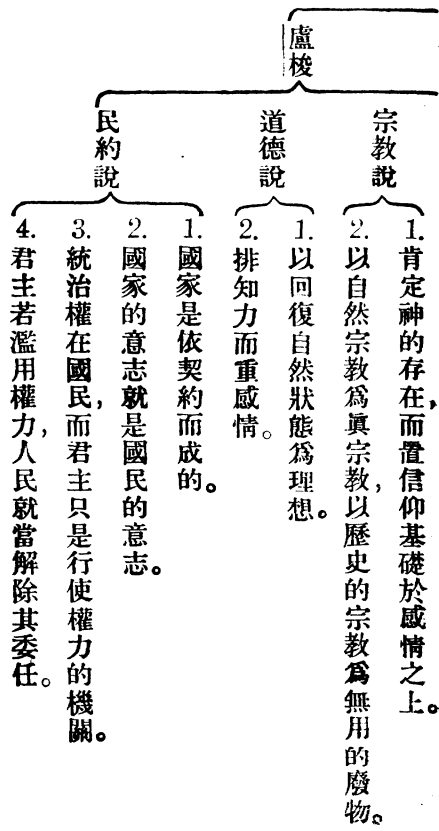 盧梭
宗敎說
1. 肯定神的存在，而置信仰基礎於感情之上。
2. 以自然宗敎爲眞宗敎，以歷史的宗敎爲無用的廢物。
道德說
1. 以回復自然狀態爲理想。
2. 排知力而重感情。
民約說
1. 國家是依契約而成的。
2. 國家的意志就是國民的意志。
3. 統治權在國民，而君主只是行使權力的機關。
4. 君主若濫用權力，人民就當解除其委任。